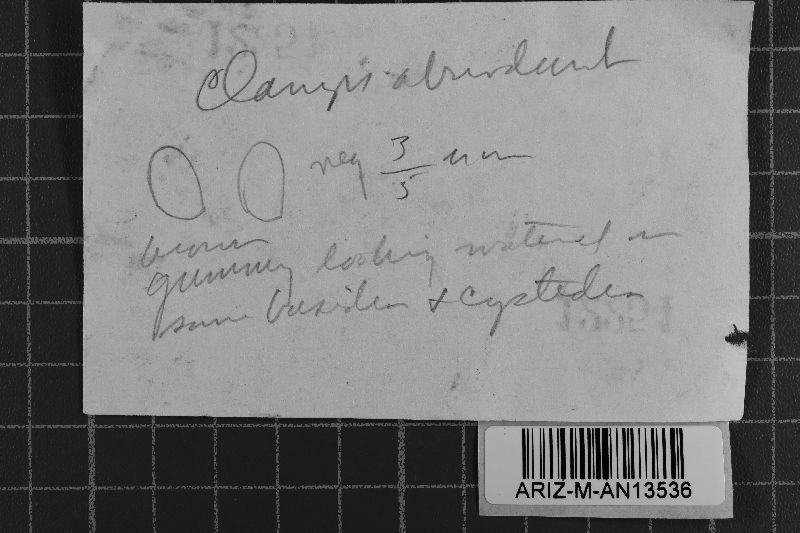 Clamps abundant
neg 3/5 um
brown
gummy looking material in
some basidia & cystidia
ARIZ-M-AN13536